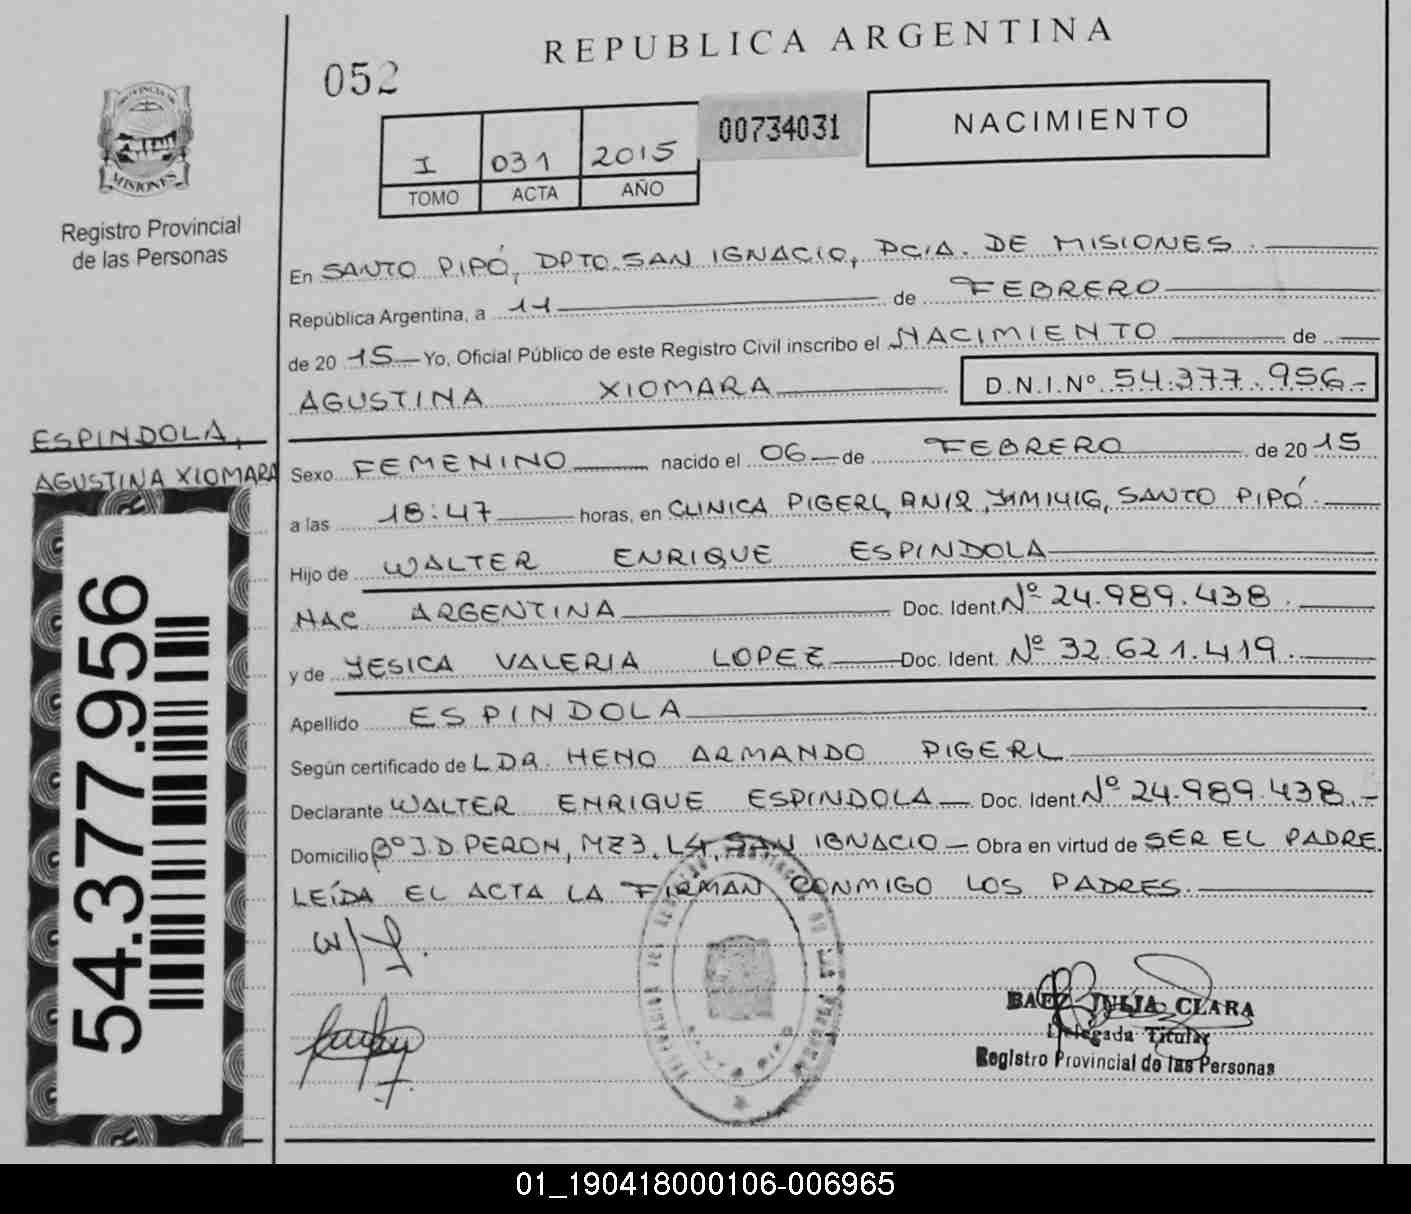 REPUBLICA ARGENTINA
052
I 031 2015
TOMO ACTA AÑO
00734031
NACIMIENTO
PROVINCIA DE
MISIONES
Registro Provincial
de las Personas
En SANTO PIPÓ, DPTO. SAN IGNACIO, PCIA. DE MISIONES.
República Argentina, a 11 de FEBRERO
de 2015 Yo, Oficial Público de este Registro Civil inscribo el NACIMIENTO de
AGUSTINA XIOMARA D.N.I.Nº 54.377.956-
ESPINDOLA,
AGUSTINA XIOMARA
54.377.956
Sexo FEMENINO nacido el 06 de FEBRERO de 2015
a las 18:47 horas, en CLINICA PIGERL, SANTO PIPÓ.
Hijo de WALTER ENRIQUE ESPINDOLA
NAC ARGENTINA Doc. Ident. Nº 24.989.438.
y de YESICA VALERIA LOPEZ Doc. Ident. Nº 32.621.419.
Apellido ESPINDOLA
Según certificado de L DR. HENO ARMANDO PIGERL
Declarante WALTER ENRIQUE ESPINDOLA Doc. Ident. Nº 24.989.438.-
Domicilio Bº J.D. PERON, MZ3, L4, SAN IGNACIO Obra en virtud de SER EL PADRE.
LEÍDA EL ACTA LA FIRMAN CONMIGO LOS PADRES.
BAEZ JULIA CLARA
Delegada Titular
Registro Provincial de las Personas
01_190418000106-006965